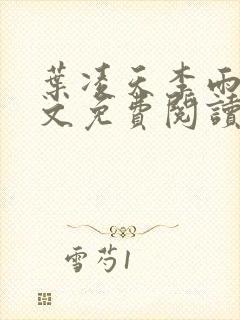 葉凌天李雨
文免費閱讀
雪芍1